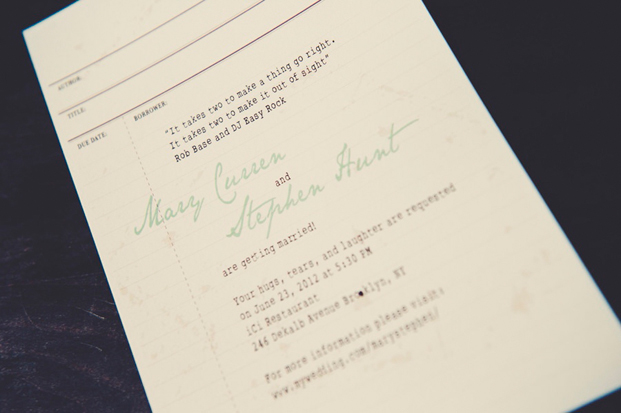 AUTHOR:
TITLE:
DUE DATE:
BORROWER:
"It takes two to make a thing go right.
It takes two to make it out of sight"
Rob Base and DJ Easy Rock
Mary Curren
and
Stephen Hunt
are getting married!
Your hugs, tears, and laughter are requested
on June 23, 2012 at 5:30 PM
iCi Restaurant
246 DeKalb Avenue Brooklyn, NY
For more information please visit:
www.mywedding.com/marystephen/